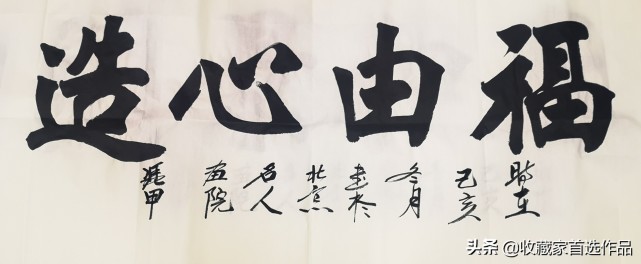 福由心造
時在己亥冬月書於北京名人画院
头条 @收藏家首选作品